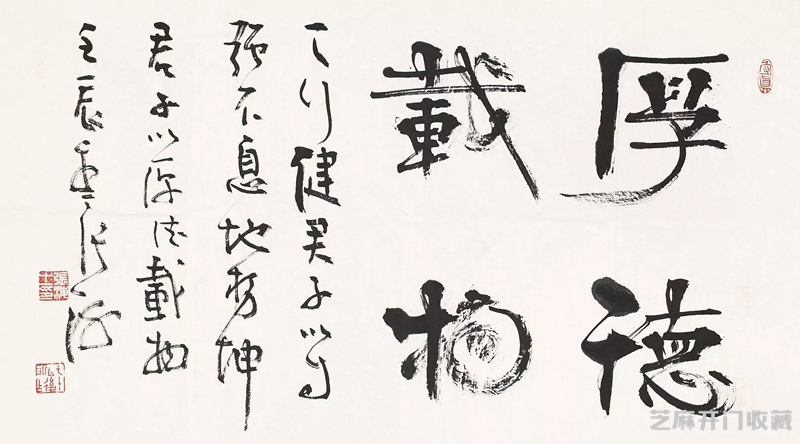 厚德
載物
天行健君子以自
强不息地势坤
君子以厚德載物
壬辰 張海
芝麻开门收藏